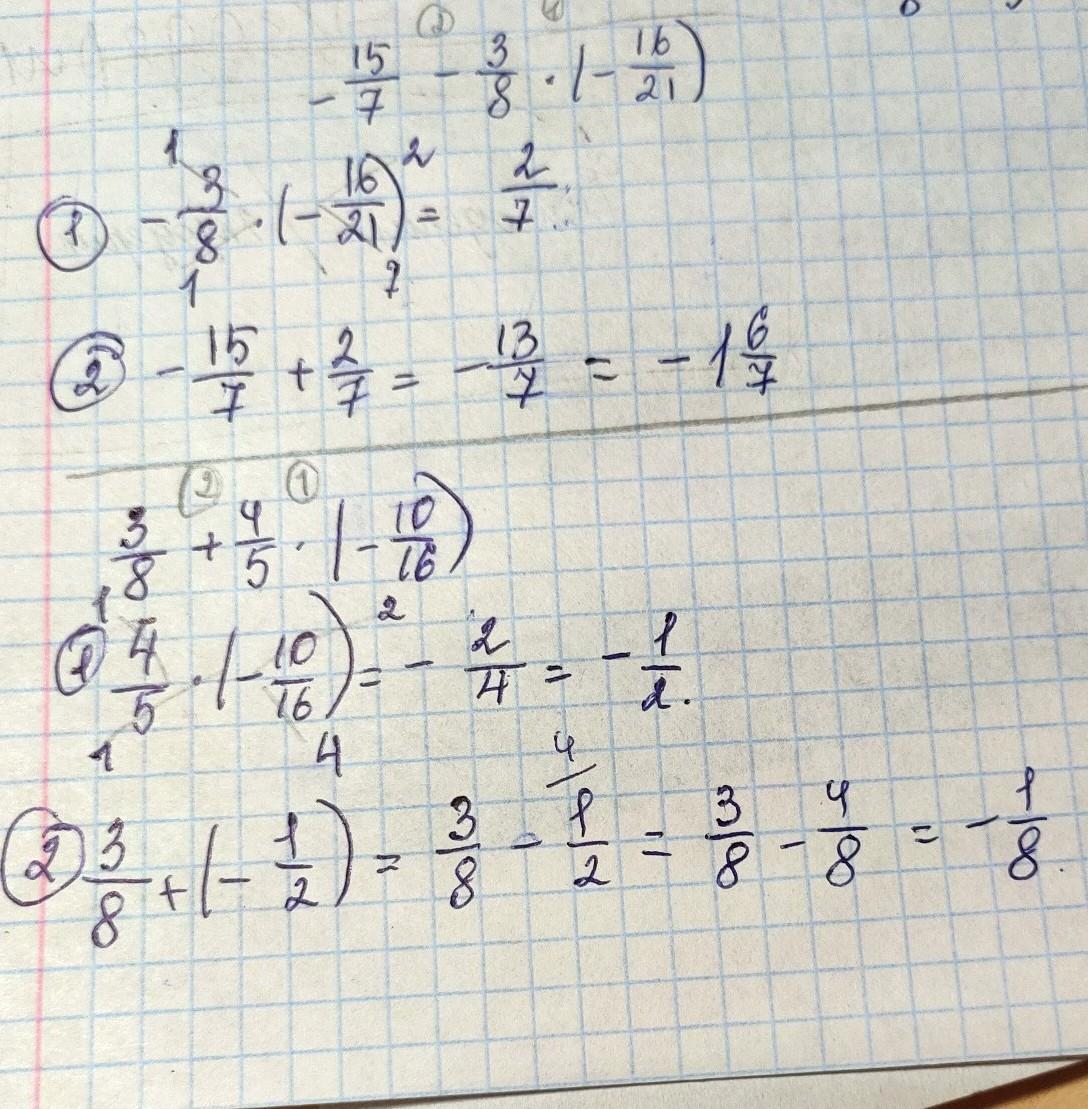 ② ①
- 15/7 - 3/8 · (- 16/21)
① - 3/8 · (- 16/21) = 2/7.
1 2
1 7
② - 15/7 + 2/7 = - 13/7 = - 1 6/7
② ①
3/8 + 4/5 · (- 10/16)
① 4/5 · (- 10/16) = - 2/4 = - 1/2.
1 2
1 4
② 3/8 + (- 1/2) = 3/8 - 1/2 = 3/8 - 4/8 = - 1/8.
4/